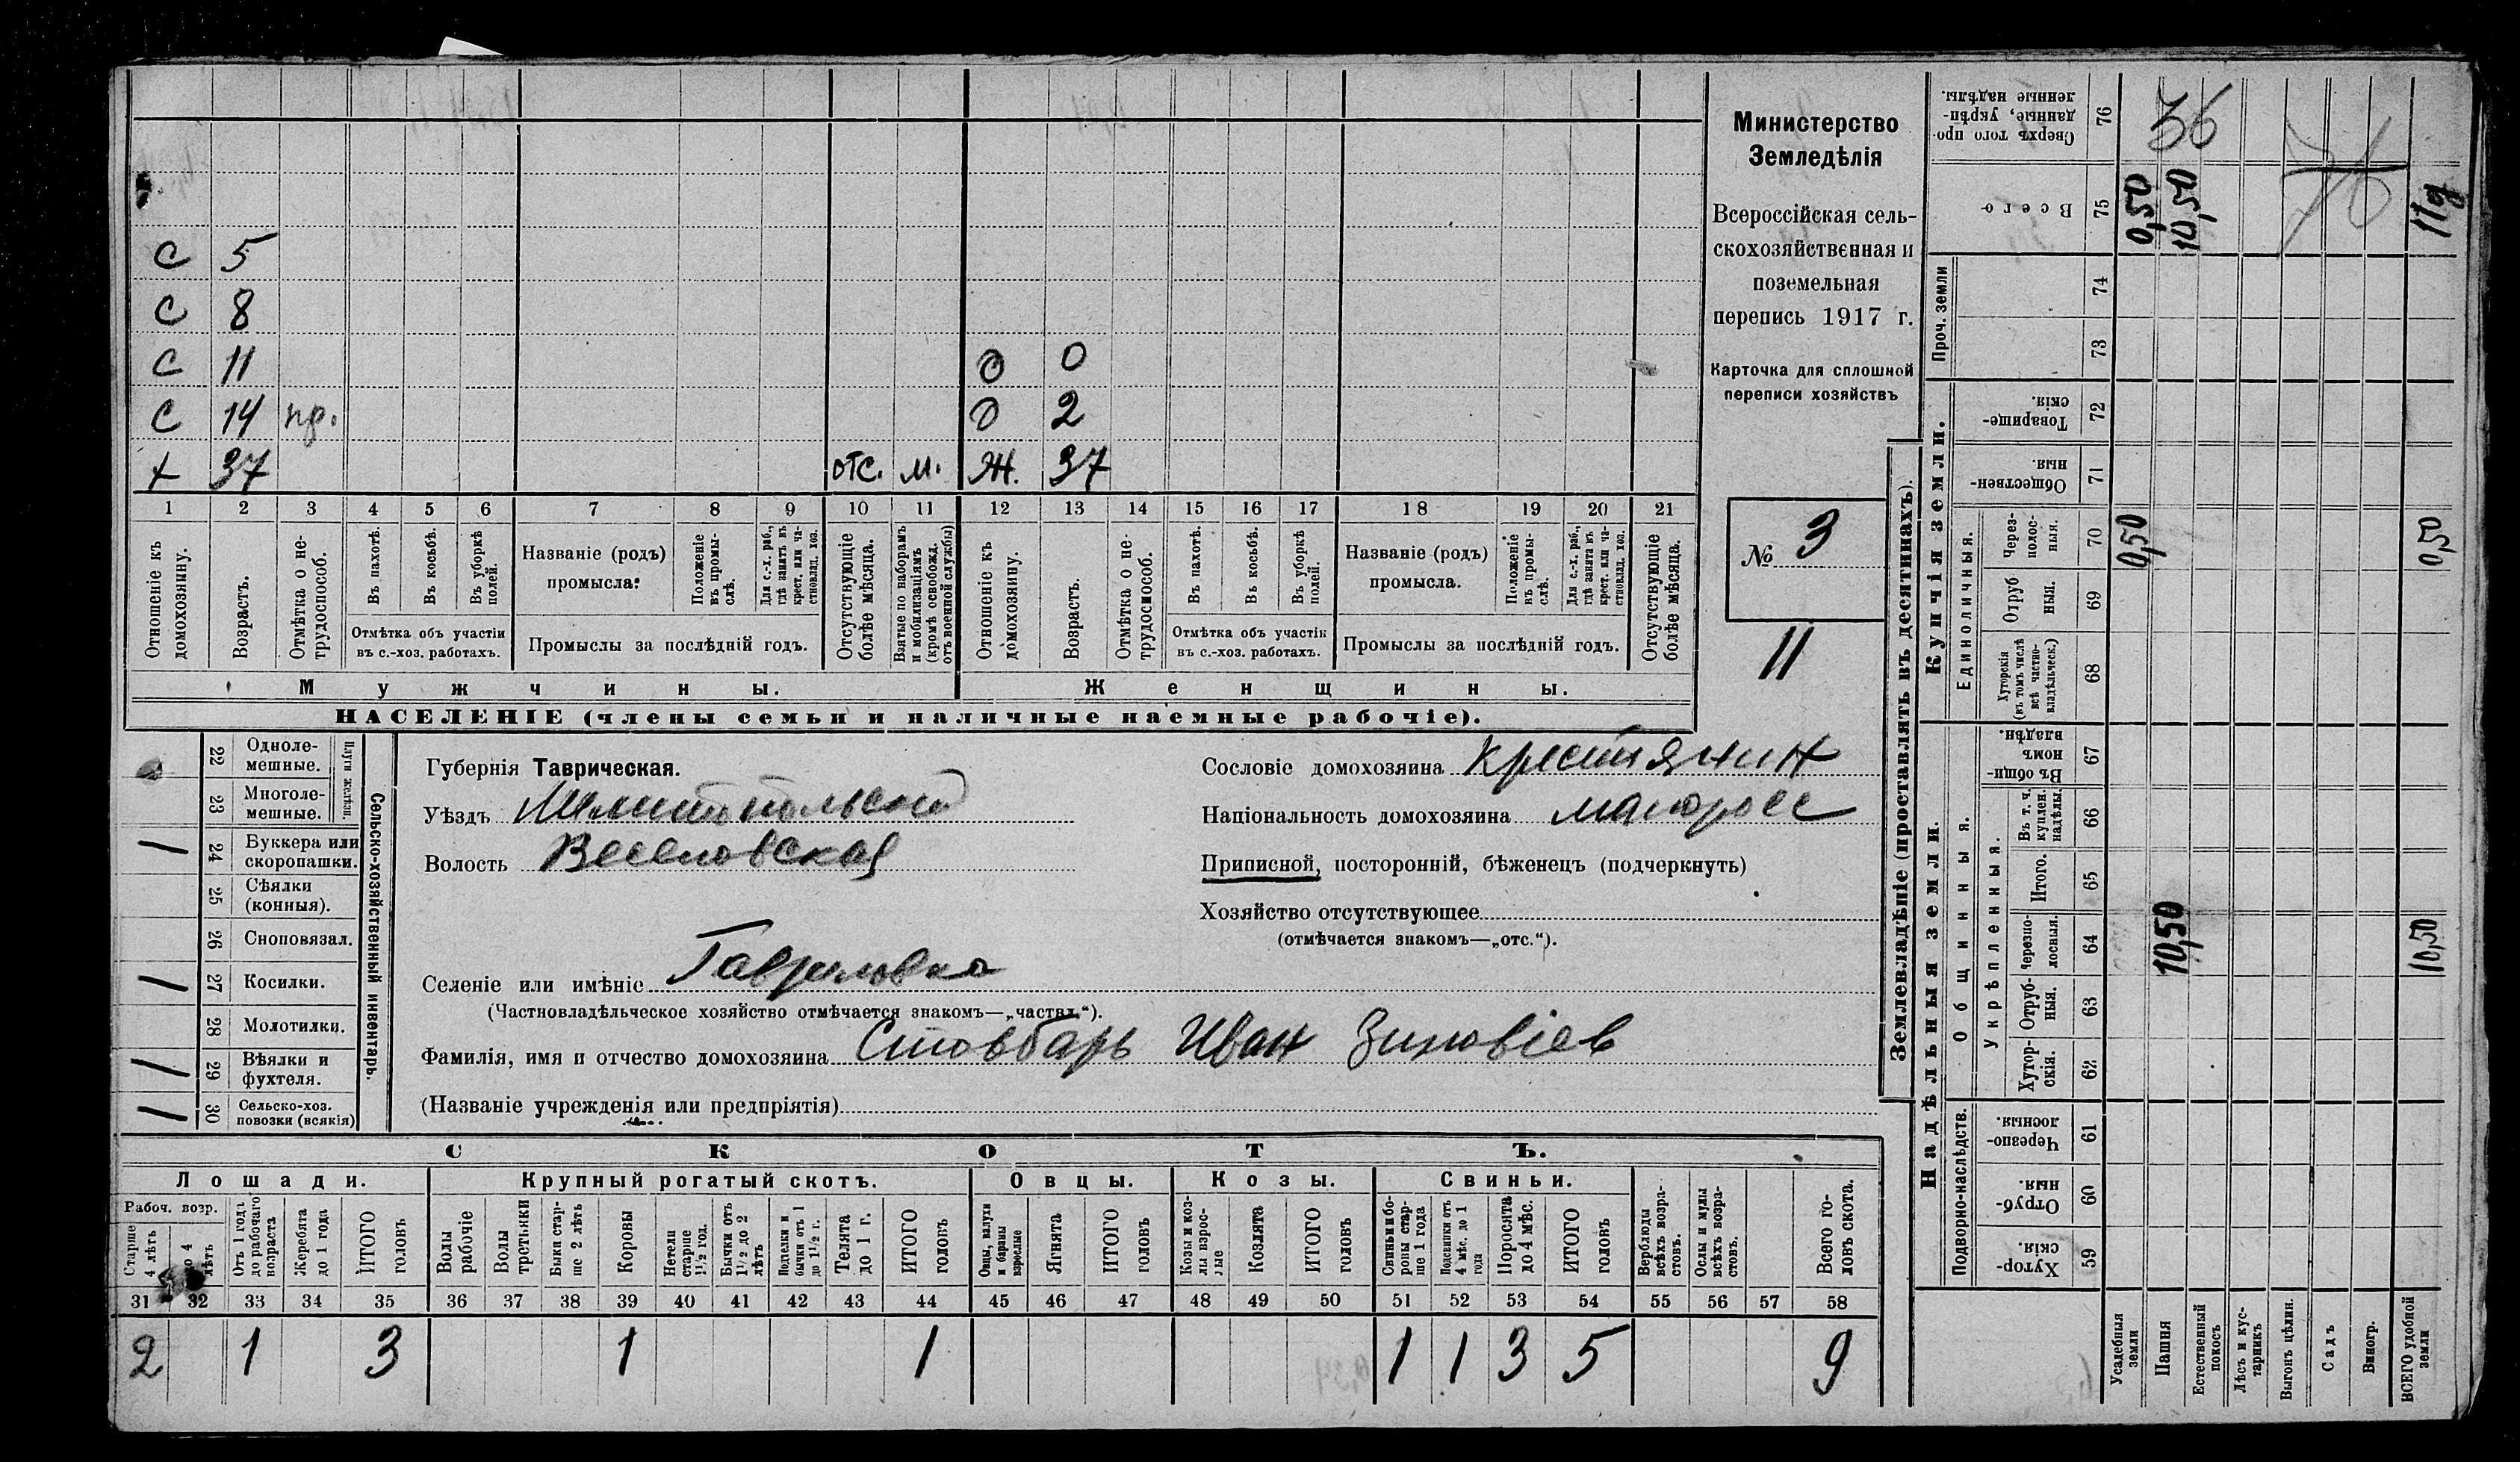 С 5
С 8
С 11 О 0
С 14 пр. О 2
+ 37 отс. м. Ж. 37
1 2 3 4 5 6 7 8 9 10 11 12 13 14 15 16 17 18 19 20 21
Отношеніе къ домохозяину.
Возрастъ.
Отмѣтка о не-трудоспособ.
Въ пахотѣ.
Въ косьбѣ.
Въ уборкѣ полей.
Отмѣтка объ участіи
въ с.-хоз. работахъ.
Названіе (родъ)
промысла:
Положеніе въ промы-слѣ.
Для с.-х. раб., гдѣ занятъ въ крест. или ча-стновлад. хоз.
Промыслы за послѣдній годъ.
Отсутствующіе болѣе мѣсяца.
Взятые по наборамъ и мобилизаціямъ (кромѣ освобожд. отъ военной службы)
Отношеніе къ домохозяину.
Возрастъ.
Отмѣтка о не-трудоспособ.
Въ пахотѣ.
Въ косьбѣ.
Въ уборкѣ полей.
Отмѣтка объ участіи
въ с.-хоз. работахъ.
Названіе (родъ)
промысла.
Положеніе въ промы-слѣ.
Для с.-х. раб., гдѣ занята въ крест. или ча-стновлад. хоз.
Промыслы за послѣдній годъ.
Отсутствующіе болѣе мѣсяца.
Мужчины. Женщины.
НАСЕЛЕНІЕ (члены семьи и наличные наемные рабочіе).
Министерство
Земледѣлія
Всероссійская сель-
скохозяйственная и
поземельная
перепись 1917 г.
Карточка для сплошной
переписи хозяйствъ
№ 3
11
Сельско-хозяйственный инвентарь.
Плуги желѣзн.
22 Одноле-мешные.
23 Многоле-мешные.
1 24 Буккера или скоропашки.
25 Сѣялки (конныя).
26 Сноповязал.
1 27 Косилки.
28 Молотилки.
1 29 Вѣялки и фухтеля.
1 30 Сельско-хоз. повозки (всякія)
Губернія Таврическая.
Уѣздъ Мелитопольскій
Волость Веселовская
Селеніе или имѣніе Гавриловка
(Частновладѣльческое хозяйство отмѣчается знакомъ—„частвл.“).
Фамилія, имя и отчество домохозяина Стовбарь Иван Зиновіев
(Названіе учрежденія или предпріятія)
Сословіе домохозяина крестянин
Національность домохозяина малоросс
Приписной, посторонній, бѣженецъ (подчеркнуть)
Хозяйство отсутствующее
(отмѣчается знакомъ—„отс.“).
СКОТЪ.
Лошади. Крупный рогатый скотъ. Овцы. Козы. Свиньи.
Рабоч. возр.
Старше 4 лѣтъ
до 4 лѣтъ
Отъ 1 года до рабочаго возраста
Жеребята до 1 года
ИТОГО головъ
Волы рабочіе
Волы третьяки
Быки стар-ше 2 лѣтъ
Коровы
Нетели старше 1½ год.
Бычки отъ 1½ до 2 лѣтъ
Подтелки и бычки отъ 1 до 1½ г.
Телята до 1 г.
ИТОГО головъ
Овцы, валухи и бараны взрослые
Ягнята
ИТОГО головъ
Козы и коз-лы взрос-лые
Козлята
ИТОГО головъ
Свиньи и бо-ровы стар-ше 1 года
Подсвинки отъ 4 мѣс. до 1 года
Поросята до 4 мѣс.
ИТОГО головъ
Верблюды всѣхъ возра-стовъ.
Ослы и мулы всѣхъ возра-стовъ.
Всего го-ловъ скота.
31 32 33 34 35 36 37 38 39 40 41 42 43 44 45 46 47 48 49 50 51 52 53 54 55 56 57 58
2 1 3 1 1 1 1 3 5 9
Землевладѣніе (проставлять въ десятинахъ).
Надѣльныя земли.
Купчія земли.
Проч. земли
Подворно-наслѣдств.
Общинныя.
Укрѣпленныя.
Единоличныя.
Сверхъ того про-данные, укрѣп-ленные надѣлы. 76 36
Всего 75 0,50 10,50 76 11д
74
73
Товарище-скія. 72
Обществен-ныя. 71
Через-полос-ныя. 70 0,50 0,50
Отруб ныя. 69
Хуторскія (въ томъ числѣ всѣ частно-владѣльческ.) 68
Въ общи-номъ владѣн. 67
Въ т. ч. куплен. надѣлы. 66
Итого. 65
Черезпо-лосныя. 64 10,50 10,50
Отруб-ныя. 63
Хутор-скія. 62
Черезпо-лосныя 61
Отруб-ныя. 60
Хутор-скія. 59
Усадебныя земли
Пашня
Естественный покосъ
Лѣсъ и кус-тарникъ
Выгонъ цѣлин.
Садъ
Виногр.
ВСЕГО удобной земли